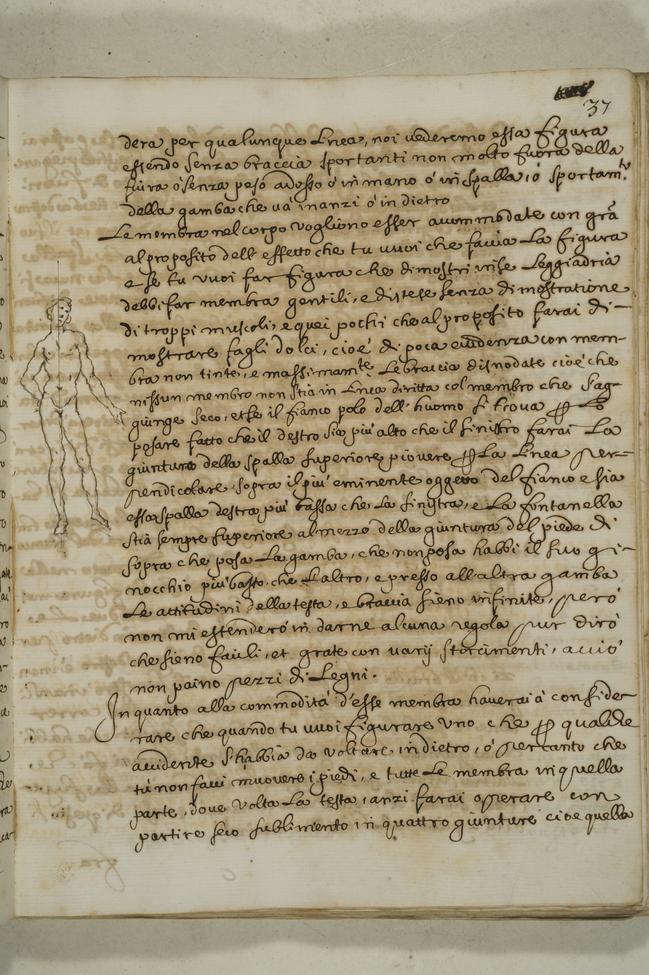 37
dera per qualunque linea, noi uederemo essa figura
essendo senza braccia sportanti non molto fuora della
fiura ò senza peso adosso ò in mano ò in spalla, ò sportam.to
della gamba che uà inanzi ò in dietro
Le membra nel corpo vogliono esser acommodate con grã
al proposito dell effetto che tu vuoi che faccia La figura
e se tu vuoi far figura che dimostri in se leggiadria
debbi far membra gentili, e distese senza dimostratione
di troppi muscoli, e quei pochi che al proposito farai di-
mostrare fagli dolci, cioè di poca euidenza con mem-
bra non tinte, e massimam.te Le braccia disnodate cioè che
nissun membro non stia in Linea diritta col membro che s'ag-
giunge seco, et se il fianco polo dell'huomo si troua ꝑ Lo
posare fatto che il destro sia più alto che il sinistro farai La
giuntura della spalla superiore piovere ꝑ La Linea per-
pendicolare, sopra il più eminente oggetto del fianco e sia
essa spalla destra più bassa che La sinistra, e La fontanella
stia sempre superiore al mezzo della giuntura del piede di
sopra che posa La gamba, che non posa habbi il suo gi-
nocchio più basso, che L'altro, e presso all'altra gamba
Le attitudini della testa, e braccia sieno infinite, però
non mi estenderò in darne alcuna regola pur dirò
che sieno facili, et grate con varij storcimenti, acciò
non paino pezzi di Legni.
In quanto alla commodità d'esse membra hauerai à consider
rare che quando tu vuoi figurare uno che ꝑ qualche
accidente s'habbia da voltare, indietro, ò per canto che
tù non facci muouere i piedi, e tutte Le membra in quella
parte, doue volta La testa, anzi farai operare con
partire seco in quattro giunture cioè quella